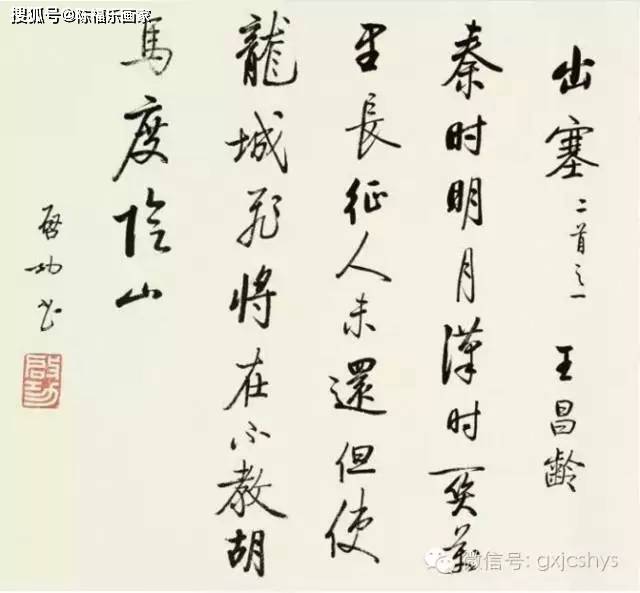 搜狐号@陈福乐画家
出塞 二首之一 王昌龄
秦时明月漢时関萬
里長征人未還但使
龍城飛将在不教胡
馬度陰山
啓功书
啟功
微信号: gxjcshys